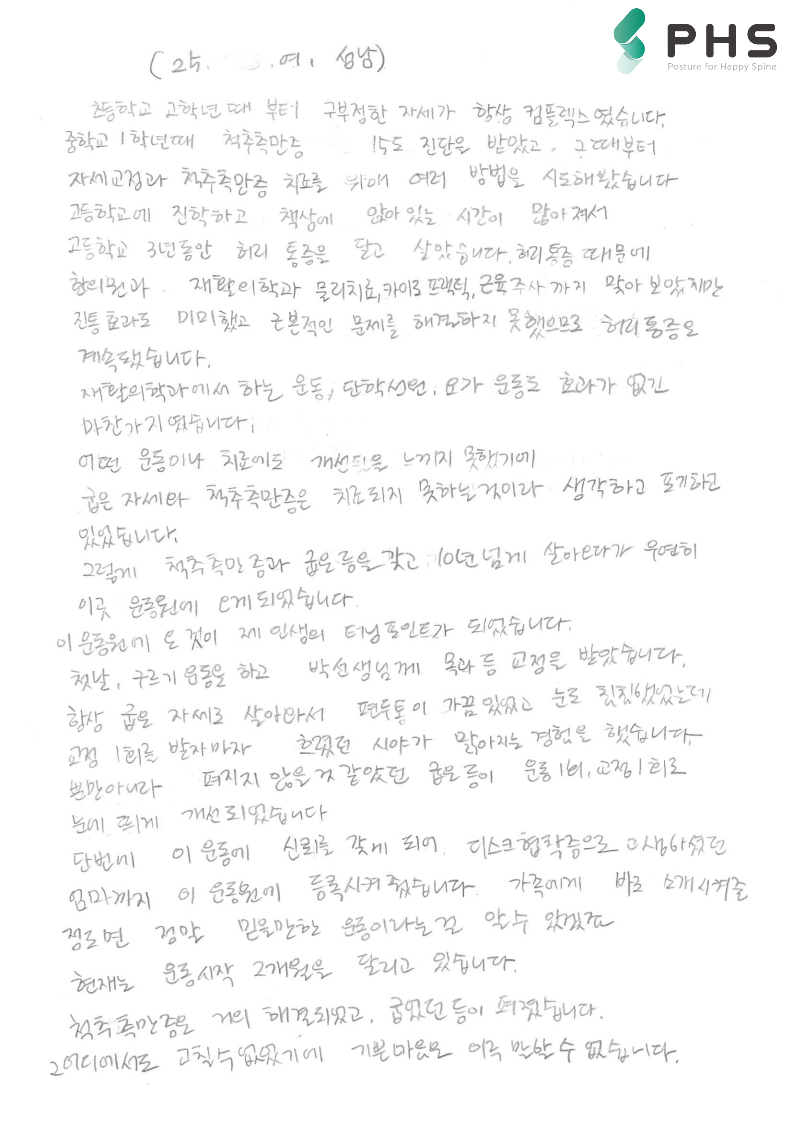 PHS
Posture for Happy Spine
(25. 여. 성남)
초등학교 고학년때 부터 구부정한 자세가 항상 컴플렉스였습니다.
중학교 1학년때 척추측만증 15도 진단을 받았고, 그때부터
자세교정과 척추측만증 치료를 위해 여러 방법을 시도해왔습니다
고등학교에 진학하고 책상에 앉아있는 시간이 많아져서
고등학교 3년동안 허리 통증을 달고 살았습니다. 허리통증 때문에
한의원과 재활의학과 물리치료, 카이로프랙틱, 근육주사까지 맞아 보았지만
진통효과도 미미했고 근본적인 문제를 해결하지 못했으므로 허리통증은
계속됐습니다.
재활의학과에서 하는 운동, 단학선원, 요가 운동도 효과가 없긴
마찬가지였습니다.
어떤 운동이나 치료에도 개선됨을 느끼지 못했기에
굽은 자세와 척추측만증은 치료되지 못하는것이라 생각하고 포기하고
있었습니다.
그렇게 척추측만증과 굽은등을 갖고 10년넘게 살아오다가 우연히
이곳 운동원에 오게되었습니다.
이 운동원에 온 것이 제 인생의 터닝포인트가 되었습니다.
첫날, 구르기 운동을 하고 박선생님께 목과 등 교정을 받았습니다.
항상 굽은 자세로 살아와서 편두통이 가끔있었고 눈도 침침했었는데
교정 1회를 받자마자 흐렸던 시야가 맑아지는 경험을 했습니다.
뿐만아니라 펴지지 않을것 같았던 굽은등이 운동 1회, 교정 1회로
눈에 띄게 개선되었습니다
단번에 이 운동에 신뢰를 갖게 되어, 디스크협착증으로 고생하셨던
엄마까지 이 운동원에 등록시켜 줬습니다. 가족에게 바로 소개시켜줄
정도면 정말 믿을만한 운동이라는걸 알수 있겠죠
현재는 운동시작 2개월을 달리고 있습니다.
척추측만증은 거의 해결되었고, 굽었던 등이 펴졌습니다.
그 어디에서도 고칠수없었기에 기쁜마음은 이루 말할 수 없습니다.